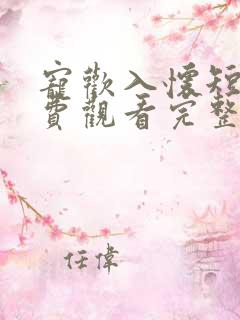 寵歡入懷短
費觀看完整
任偉